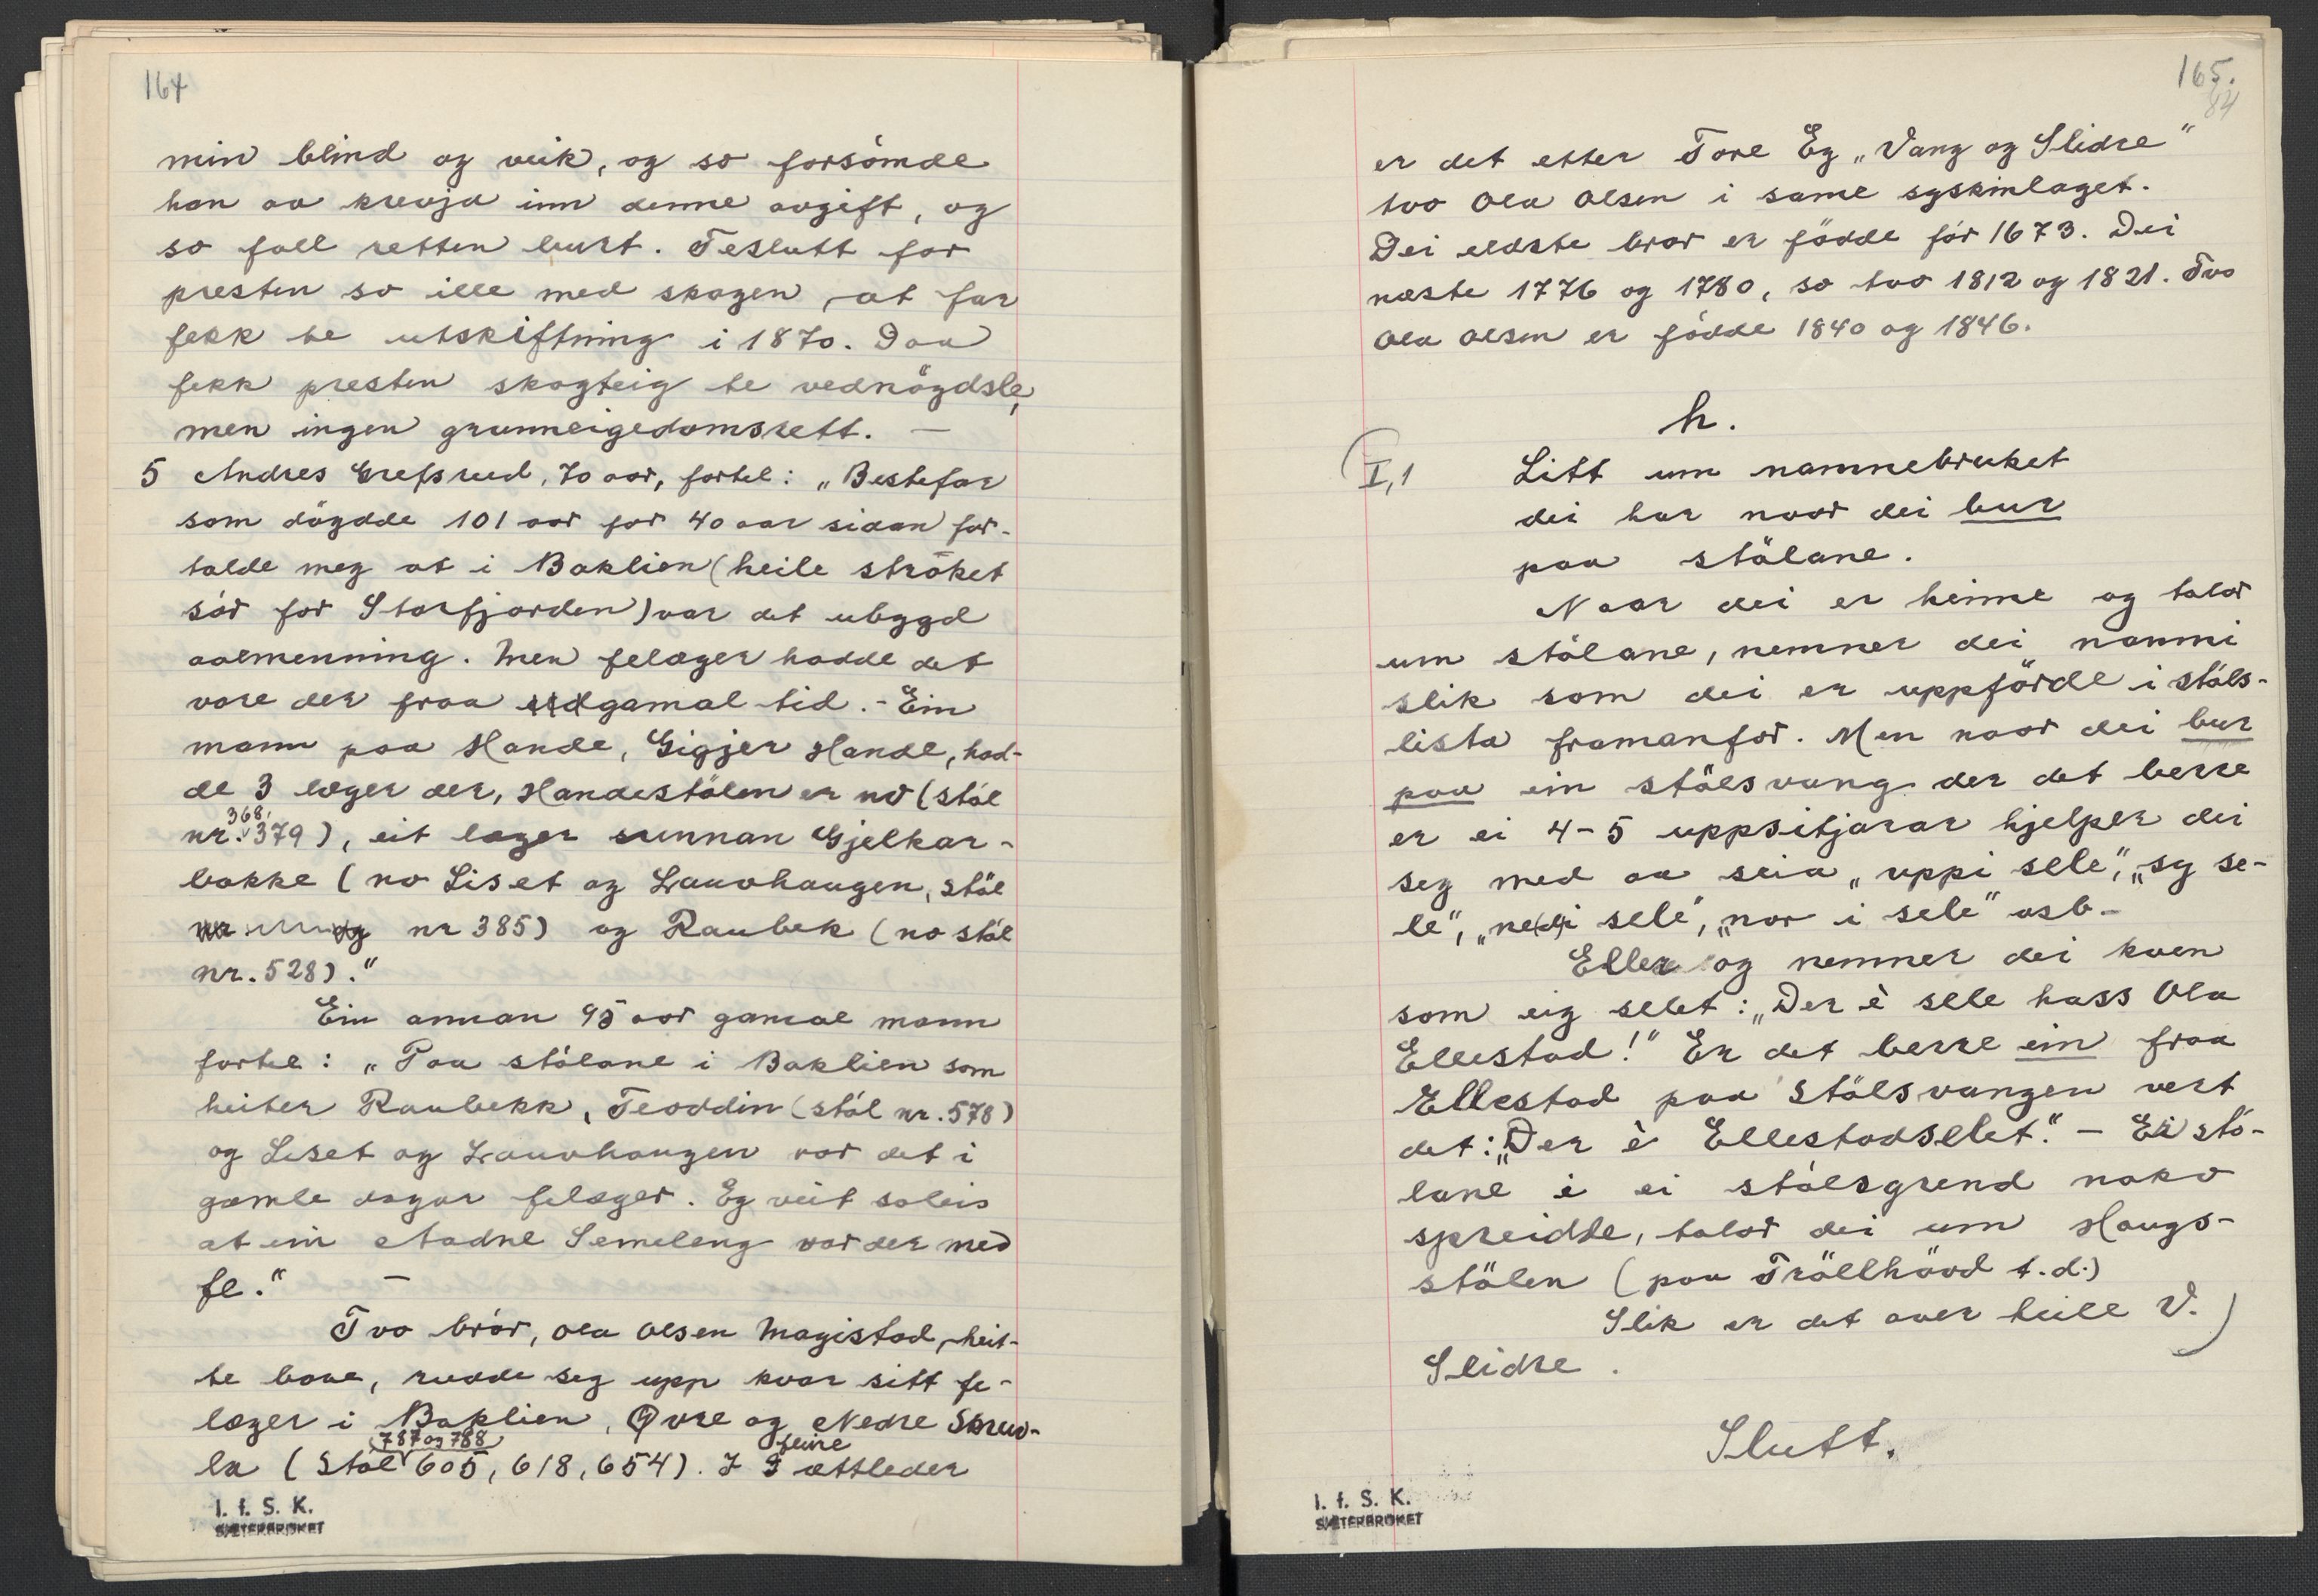 164
min blind og veik, og so forsömde
han aa krevja inn denne avgift, og
so fall retten burt. Teslutt for
presten so ille med skogen, at far
fekk te utskiftning i 1870. Daa
fekk presten skogteig te vednögdsle,
men ingen grunneigedomsrett. —
5 Andres Grefsrud, 70 aar, fortel: „Bestefar
som döydde 101 aar for 40 aar sidan for-
talde meg at i Baklien (heile ströket
sör for Storfjorden) var det ubygd
aalmenning. Men felæger hadde det
vore der fraa gamal tid. - Ein
mann paa Hande, Gigjer Hande, had-
de 3 læger der, Handestölen er no (stöl
nr. 368, 379), eit læger sunnan Gjelkar-
bakke (no Liset og Lauvhaugen, stöl
nr 385) og Raubek (no stöl
nr. 528)."
Ein annan 95 aar gamal mann
fortel: „Paa stölane i Baklien som
heiter Raubekk, Teoddin (stöl nr. 578)
og Liset og Lauvhaugen var det i
gamle dagar felæger. Eg veit soleis
at ein Stadne Semeleng var der med
fe." —
Tvo brör, Ola Olsen Magistad, heit-
te baae, rudde seg upp kvar sitt fe-
læger i Baklien, Øvre og Nedre Skruv-
la (Stöl 787 og 788 605, 618, 654). I fleire ættleder
I. f. S. K.
SÆTERBRUKET
165.
84
er det etter Tore Ey „Vang og Slidre"
tvo Ola Olsen i same syskinlaget.
Dei eldste brör er födde för 1673. Dei
næste 1776 og 1780, so tvo 1812 og 1821. Tvo
Ola Olsen er födde 1840 og 1846.
h.
I,1 Litt um namnebruket
dei har naar dei bur
paa stölane.
Naar dei er heime og talar
um stölane, nemner dei namni
slik som dei er uppförde i stöls-
lista framanfor. Men naar dei bur
paa ein stölsvang der det berre
er ei 4-5 uppsitjarar hjelper dei
seg med aa seia „uppi sele", „sy se-
le", „nedi sele", „nor i sele" osb.-
Eller og nemner dei kven
som eig selet: „Der è sele hass Ola
Ellestad!" Er det berre ein fraa
Ellestad paa stölsvangen vert
det: „Der è Ellestadselet." - Er stö-
lane i ei stölsgrend noko
spreidde, talar dei um Haugs-
stölen (paa Tröllhövd t.d.)
Slik er det over heile V.
Slidre.
Slutt.
I. f. S. K.
SÆTERBRUKET